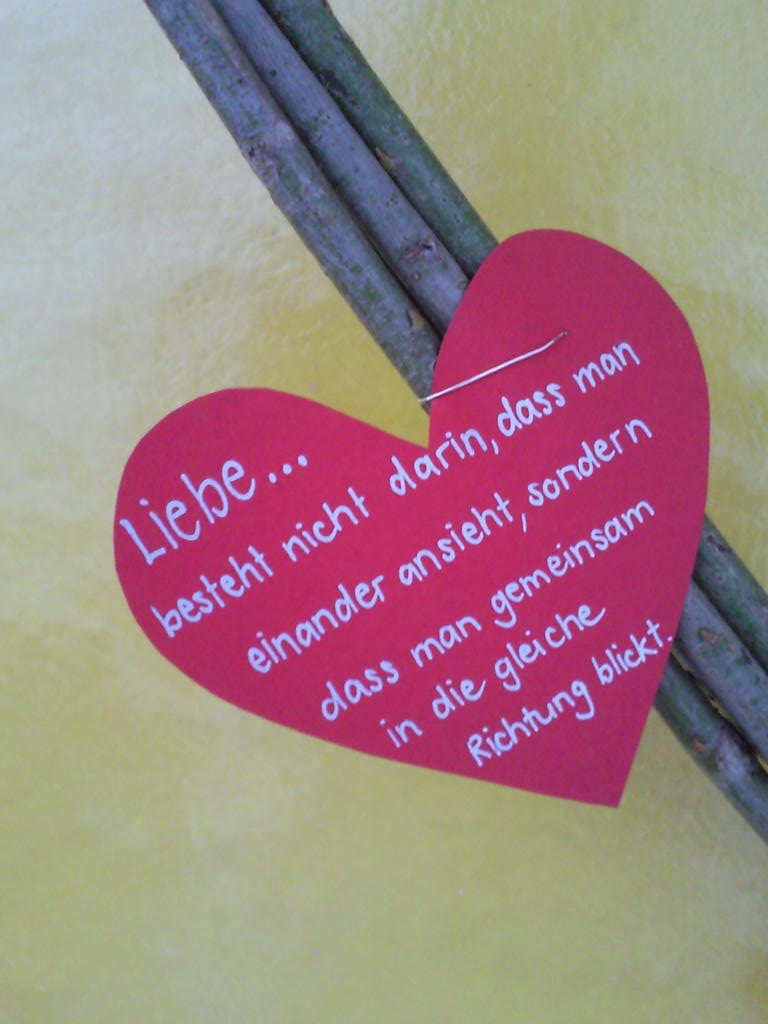 Liebe...
besteht nicht darin, dass man
einander ansieht, sondern
dass man gemeinsam
in die gleiche
Richtung blickt.